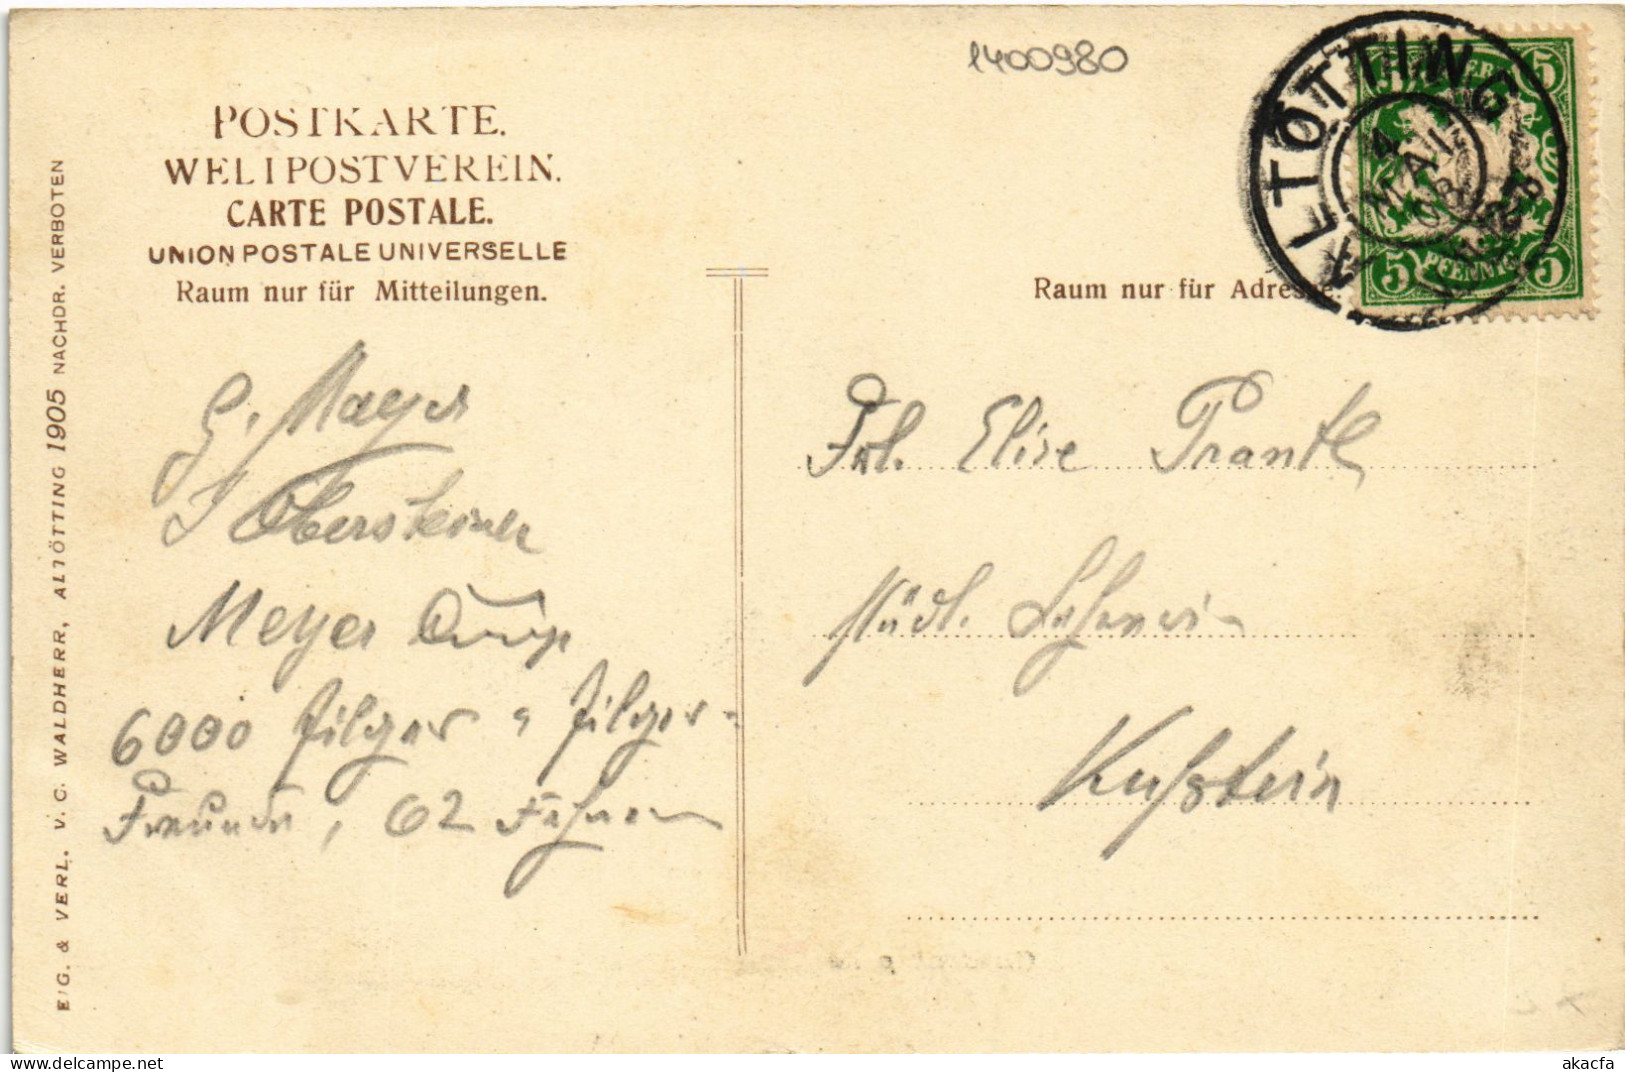 1400980
POSTKARTE.
WELTPOSTVEREIN.
CARTE POSTALE.
UNION POSTALE UNIVERSELLE
Raum nur für Mitteilungen.
Raum nur für Adresse.
ALTÖTTING
4. MAI
5 5
BAYERN
5 PFENNIG 5
EIG. & VERL. V. C. WALDHERR, ALTÖTTING 1905 NACHDR. VERBOTEN
G. Mayer
J Obersteiner
Meyer
6000 Pilger u Pilger-
Freunde, 62 Fahnen
Frl. Elise Prantl
städt. Lehrerin
Kufstein
akacfa